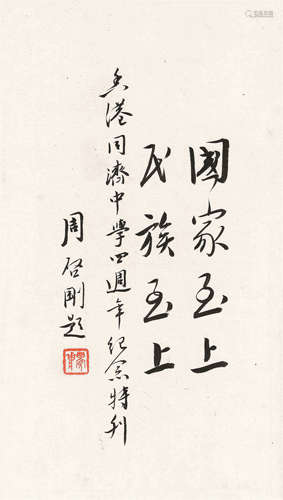 國家至上
民族至上
香港同濟中學四週年紀念特刊
周啓剛題